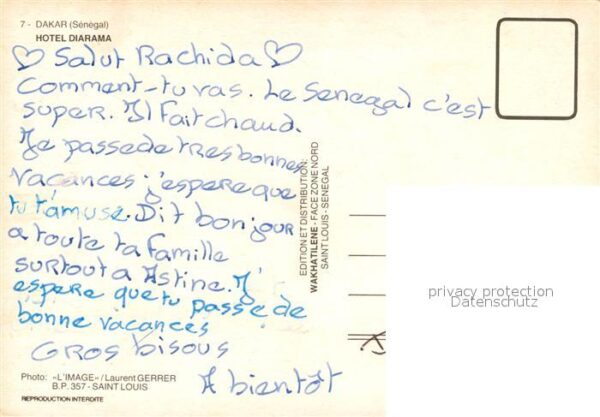 7 - DAKAR (Sénégal)
HOTEL DIARAMA
♡ Salut Rachida ♡
Comment-tu vas. Le Senegal c'est
super. Il Fait chaud.
Je passe de tres bonnes
vacances j'espere que
tu t'amuse. Dit bonjour
a toute ta famille
surtout a Astine. J'
espere que tu passe de
bonne vacances
Gros bisous
A bientôt
Photo: «L'IMAGE» / Laurent GERRER
B.P. 357 - SAINT LOUIS
REPRODUCTION INTERDITE
EDITION ET DISTRIBUTION:
WAKHATILENE - FACE ZONE NORD
SAINT LOUIS - SENEGAL
privacy protection
Datenschutz